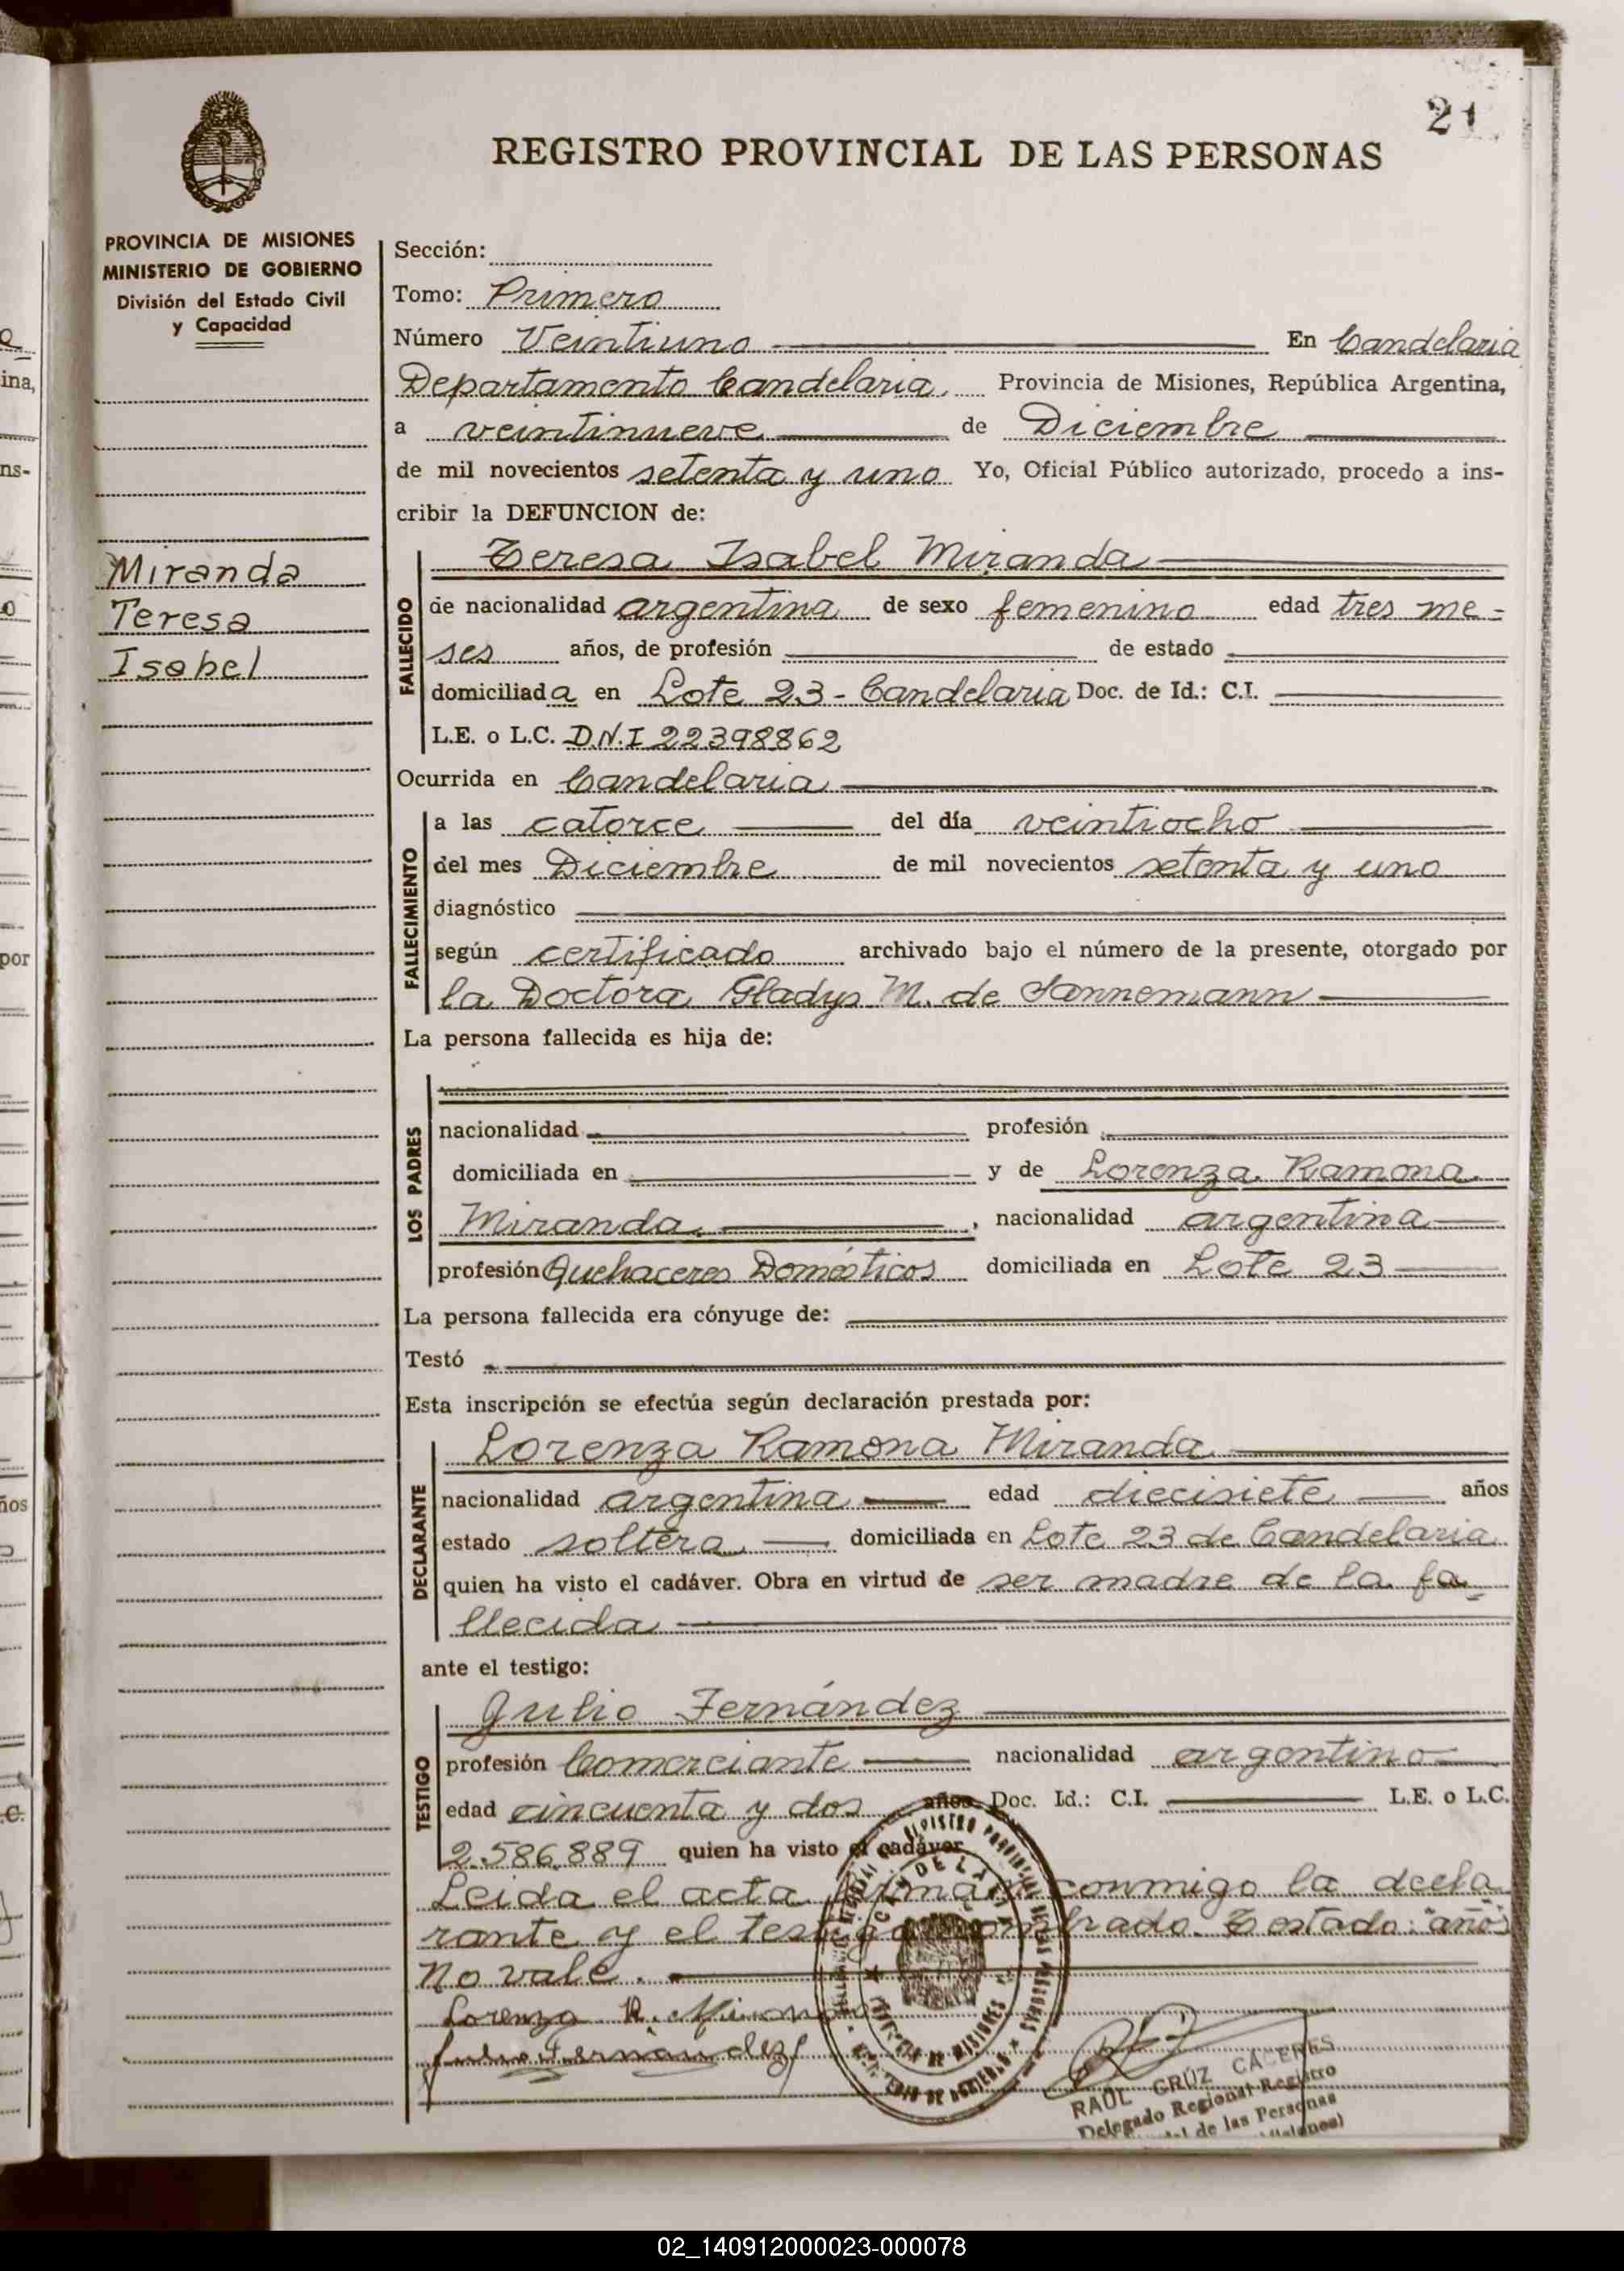 21
REGISTRO PROVINCIAL DE LAS PERSONAS
PROVINCIA DE MISIONES
MINISTERIO DE GOBIERNO
División del Estado Civil
y Capacidad
Miranda
Teresa
Isabel
Sección:
Tomo: Primero
Número Veintiuno En Candelaria
Departamento Candelaria, Provincia de Misiones, República Argentina,
a veintinueve de Diciembre
de mil novecientos setenta y uno Yo, Oficial Público autorizado, procedo a ins-
cribir la DEFUNCION de:
FALLECIDO
Teresa Isabel Miranda
de nacionalidad argentina de sexo femenino edad tres me-
ses años, de profesión de estado
domiciliada en Lote 23 - Candelaria Doc. de Id.: C.I.
L.E. o L.C. D.N.I 22398862
Ocurrida en Candelaria
FALLECIMIENTO
a las catorce del día veintiocho
del mes Diciembre de mil novecientos setenta y uno
diagnóstico
según certificado archivado bajo el número de la presente, otorgado por
la Doctora Gladys M. de Sannemann
La persona fallecida es hija de:
LOS PADRES
nacionalidad profesión
domiciliada en y de Lorenza Ramona
Miranda, nacionalidad argentina
profesión Quehaceres Domésticos domiciliada en Lote 23
La persona fallecida era cónyuge de:
Testó
Esta inscripción se efectúa según declaración prestada por:
DECLARANTE
Lorenza Ramona Miranda
nacionalidad argentina edad diecisiete años
estado soltera domiciliada en Lote 23 de Candelaria
quien ha visto el cadáver. Obra en virtud de ser madre de la fa-
llecida
ante el testigo:
TESTIGO
Julio Fernández
profesión Comerciante nacionalidad argentino
edad cincuenta y dos años Doc. Id.: C.I. L.E. o L.C.
2.586.889 quien ha visto el cadáver
Leida el acta firman conmigo la decla
rante y el testigo nombrado. Testado: "años"
No vale.
Lorenza R. Miranda
Julio Fernandez
RAUL CRUZ CACERES
Delegado Regional Registro
de las Personas
(Misiones)
02_140912000023-000078